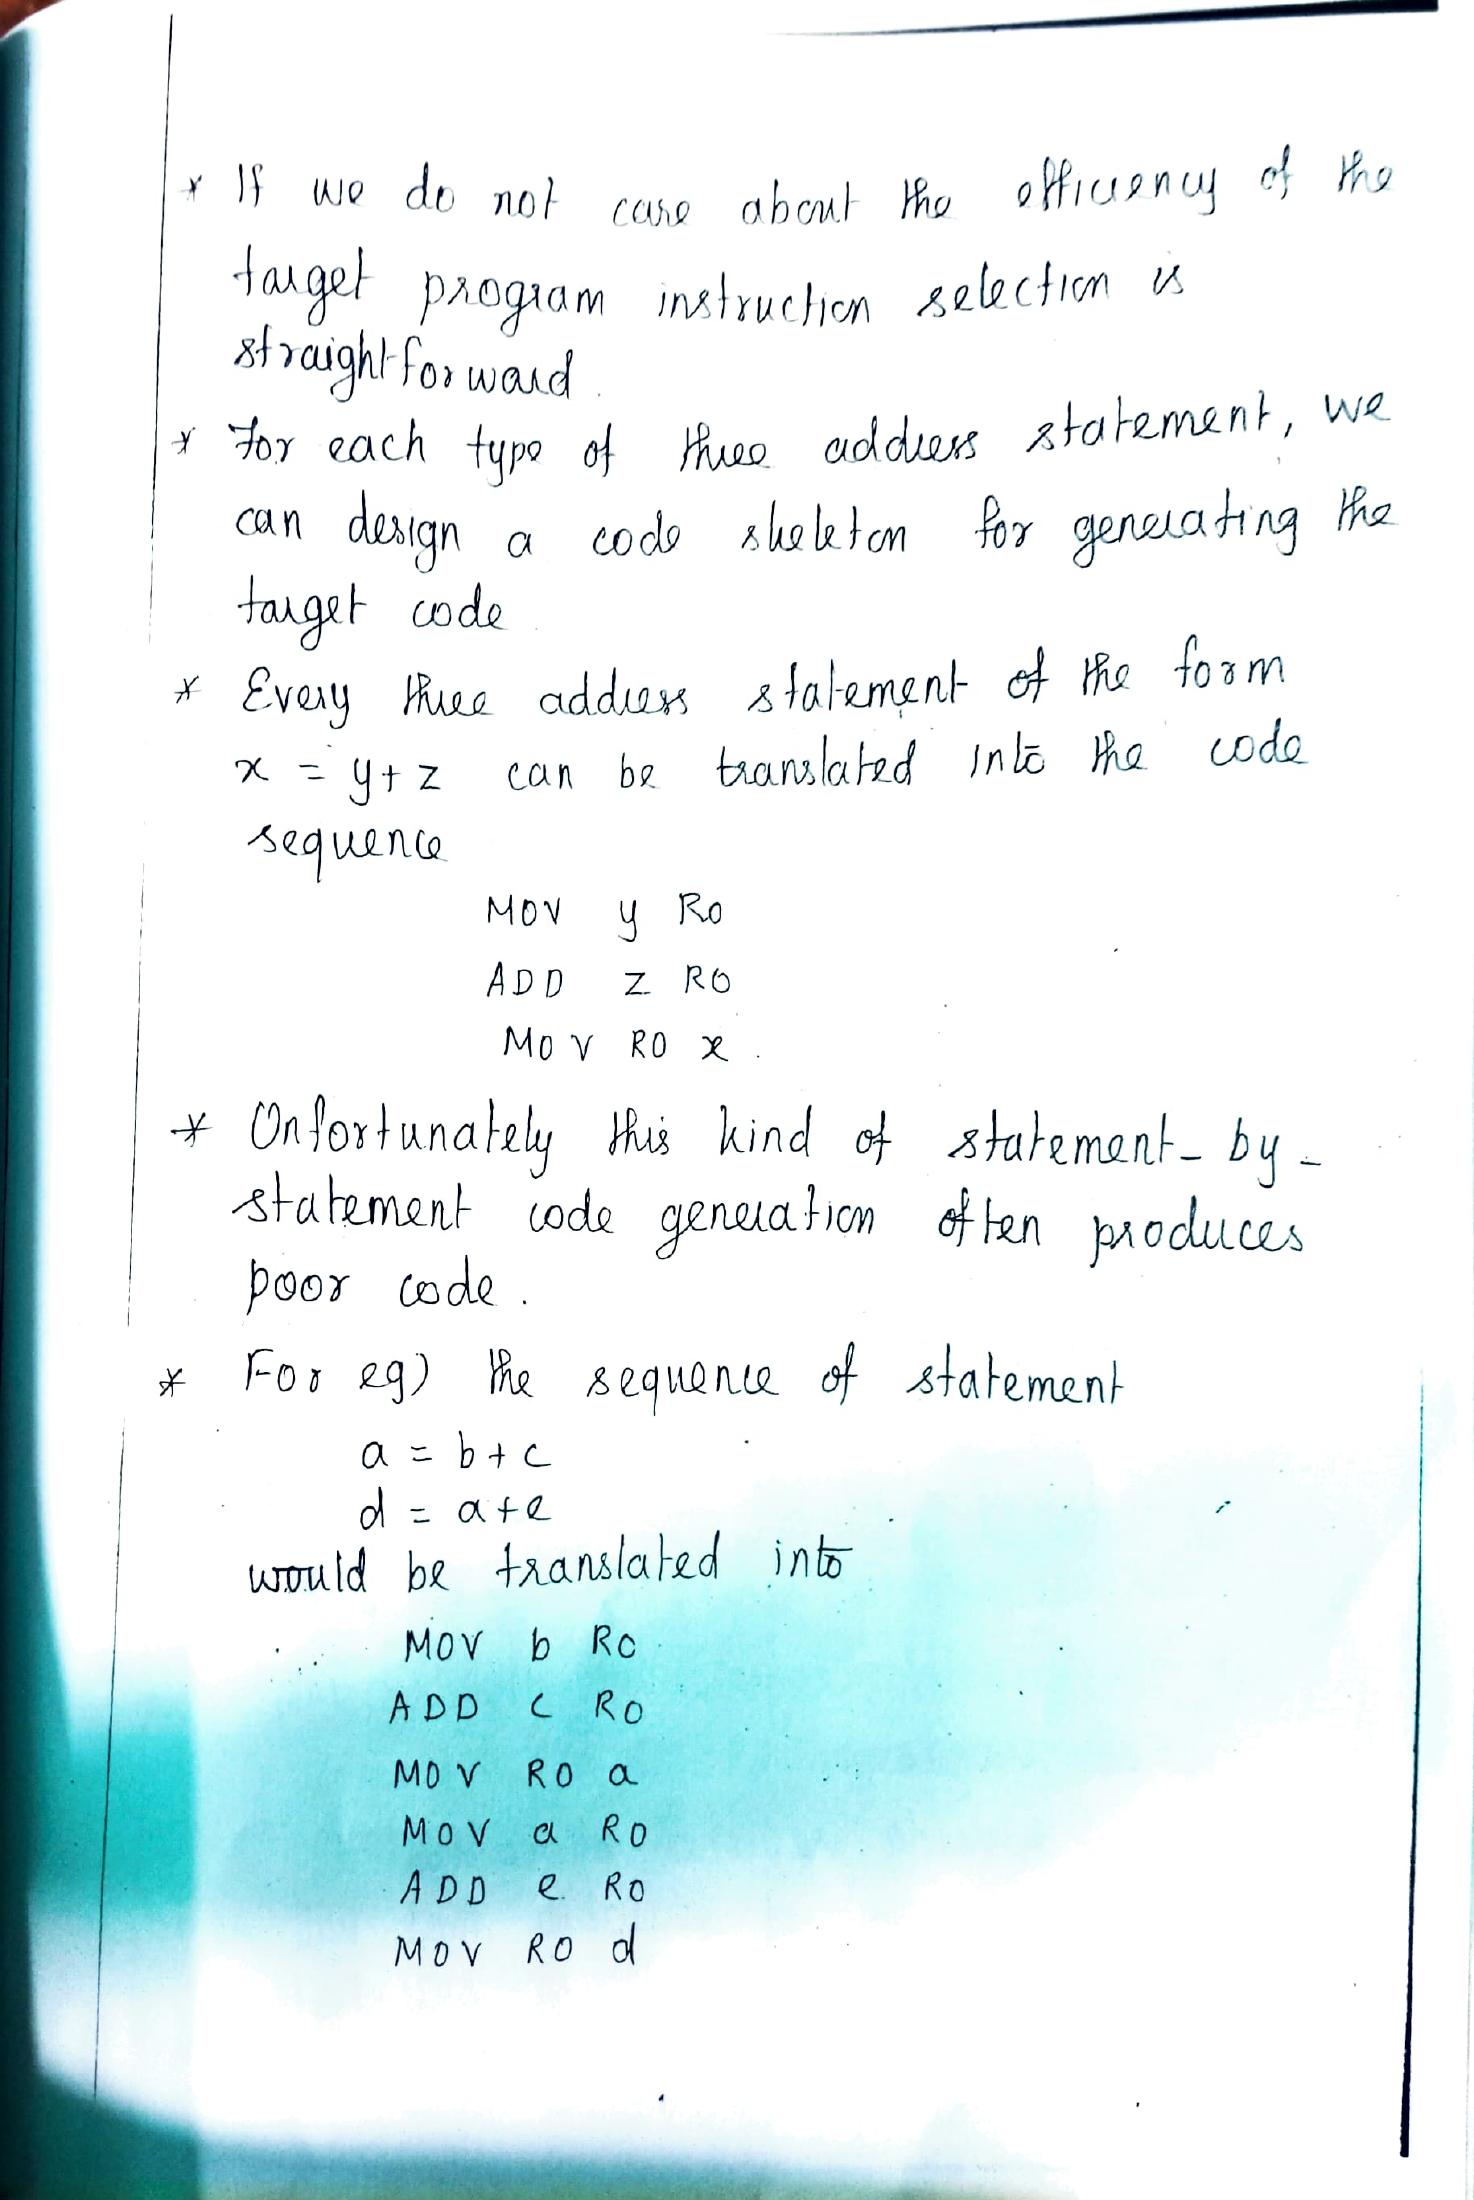 * If we do not care about the efficiency of the
target program instruction selection is
straightforward.
* For each type of three address statement, we
can design a code skeleton for generating the
target code
* Every three address statement of the form
x = y+z can be translated into the code
sequence
MOV y R0
ADD z R0
MOV R0 x.
* Unfortunately this kind of statement-by-
statement code generation often produces
poor code.
* For eg) the sequence of statement
a = b+c
d = a+e
would be translated into
MOV b R0
ADD c R0
MOV R0 a
MOV a R0
ADD e R0
MOV R0 d